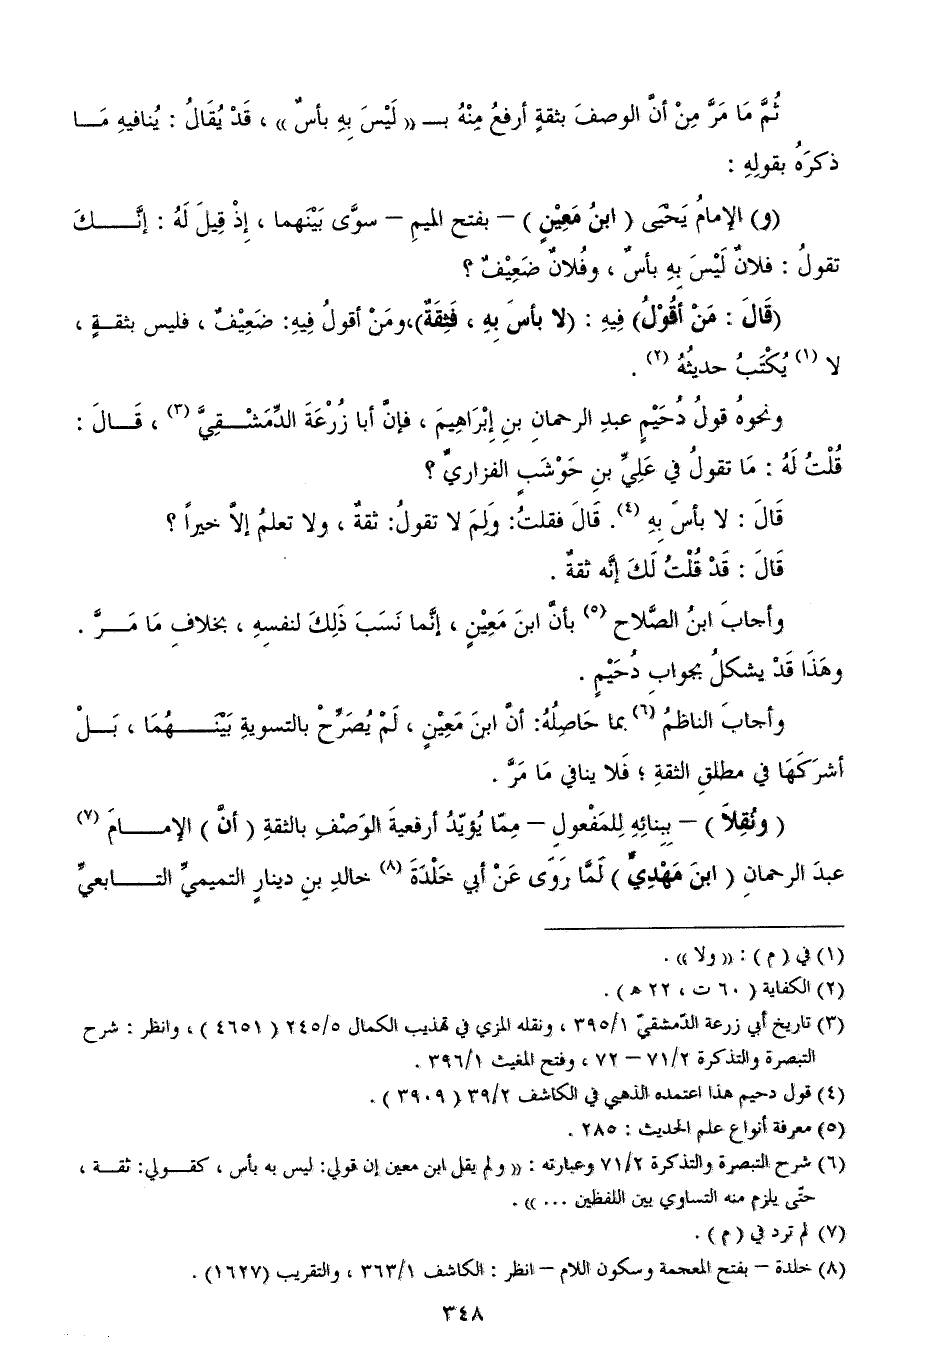 ثُمَّ مَا مَرَّ مِنْ أنَّ الوصفَ بثقةٍ أرفعُ مِنْهُ بـ « لَيْسَ بِهِ بأسٌ » ، قَدْ يُقَالُ : يُنافيهِ مَا
ذكرَهُ بقولِهِ :
(و) الإمامُ يَحْيَى ( ابنُ مَعِيْنٍ ) – بفتح الميمِ – سوَّى بَيْنَهما ، إذْ قِيلَ لَهُ : إنَّكَ
تقولُ : فلانٌ لَيْسَ بِهِ بأسٌ ، وفُلانٌ ضَعِيْفٌ ؟
(قَالَ : مَنْ أقُوْلُ) فِيهِ : (لا بأسَ بِهِ ، فَثِقَةٌ)،ومَنْ أقولُ فِيهِ: ضَعِيْفٌ ، فليس بثقةٍ ،
لا (١) يُكْتَبُ حديثُهُ (٢) .
ونحوهُ قولُ دُحَيْمٍ عبدِ الرحمانِ بنِ إِبْرَاهِيمَ ، فإنَّ أبا زُرْعَةَ الدِّمَشْقِيَّ (٣) ، قَالَ :
قُلْتُ لَهُ : مَا تقولُ في عَلِيِّ بنِ حَوْشَبٍ الفزاريِّ ؟
قَالَ : لا بأسَ بِهِ (٤). قَالَ فقلتُ: وَلِمَ لا تقولُ: ثقةٌ ، ولا تعلمُ إلاَّ خيراً ؟
قَالَ : قَدْ قُلْتُ لَكَ إنَّه ثقةٌ .
وأجابَ ابنُ الصَّلاحِ (٥) بأنَّ ابنَ مَعِيْنٍ ، إنَّما نَسَبَ ذَلِكَ لنفسِهِ ، بخلافِ مَا مَرَّ .
وهَذَا قَدْ يشكلُ بجوابِ دُحَيْمٍ .
وأجابَ الناظمُ (٦) بما حَاصِلُهُ: أنَّ ابنَ مَعِيْنٍ ، لَمْ يُصَرِّحْ بالتسويةِ بَيْنَهُمَا ، بَلْ
أشرَكَهَا في مطلقِ الثقةِ ؛ فَلا ينافي مَا مَرَّ .
( ونُقِلاَ ) – ببنائِهِ لِلمَفْعولِ – مِمّا يُؤيّدُ أرفعيةَ الوَصْفِ بالثقةِ ( أنَّ ) الإمامَ (٧)
عبدَ الرحمانِ ( ابنَ مَهْدِيٍّ ) لَمَّا رَوَى عَنْ أبي خَلْدَةَ (٨) خالدِ بنِ دينارٍ التميميِّ التابعيِّ
(١) في ( م ) : « ولا » .
(٢) الكفاية ( ٦٠ ت ، ٢٢ هـ ) .
(٣) تاريخ أبي زرعة الدّمشقيّ ٣٩٥/١ ، ونقله المزي في تهذيب الكمال ٢٤٥/٥ ( ٤٦٥١ ) ، وانظر : شرح
التبصرة والتذكرة ٧١/٢ – ٧٢ ، وفتح المغيث ٣٩٦/١ .
(٤) قول دحيم هذا اعتمده الذهبي في الكاشف ٣٩/٢ ( ٣٩٠٩ ) .
(٥) معرفة أنواع علم الحديث : ٢٨٥ .
(٦) شرح التبصرة والتذكرة ٧١/٢ وعبارته : « ولم يقل ابن معين إن قولي: ليس به بأس ، كقولي: ثقة ،
حتّى يلزم منه التساوي بين اللفظين ... » .
(٧) لم ترد في ( م ) .
(٨) خلدة – بفتح المعجمة وسكون اللام – انظر : الكاشف ٣٦٣/١ ، والتقريب (١٦٢٧) .
٣٤٨